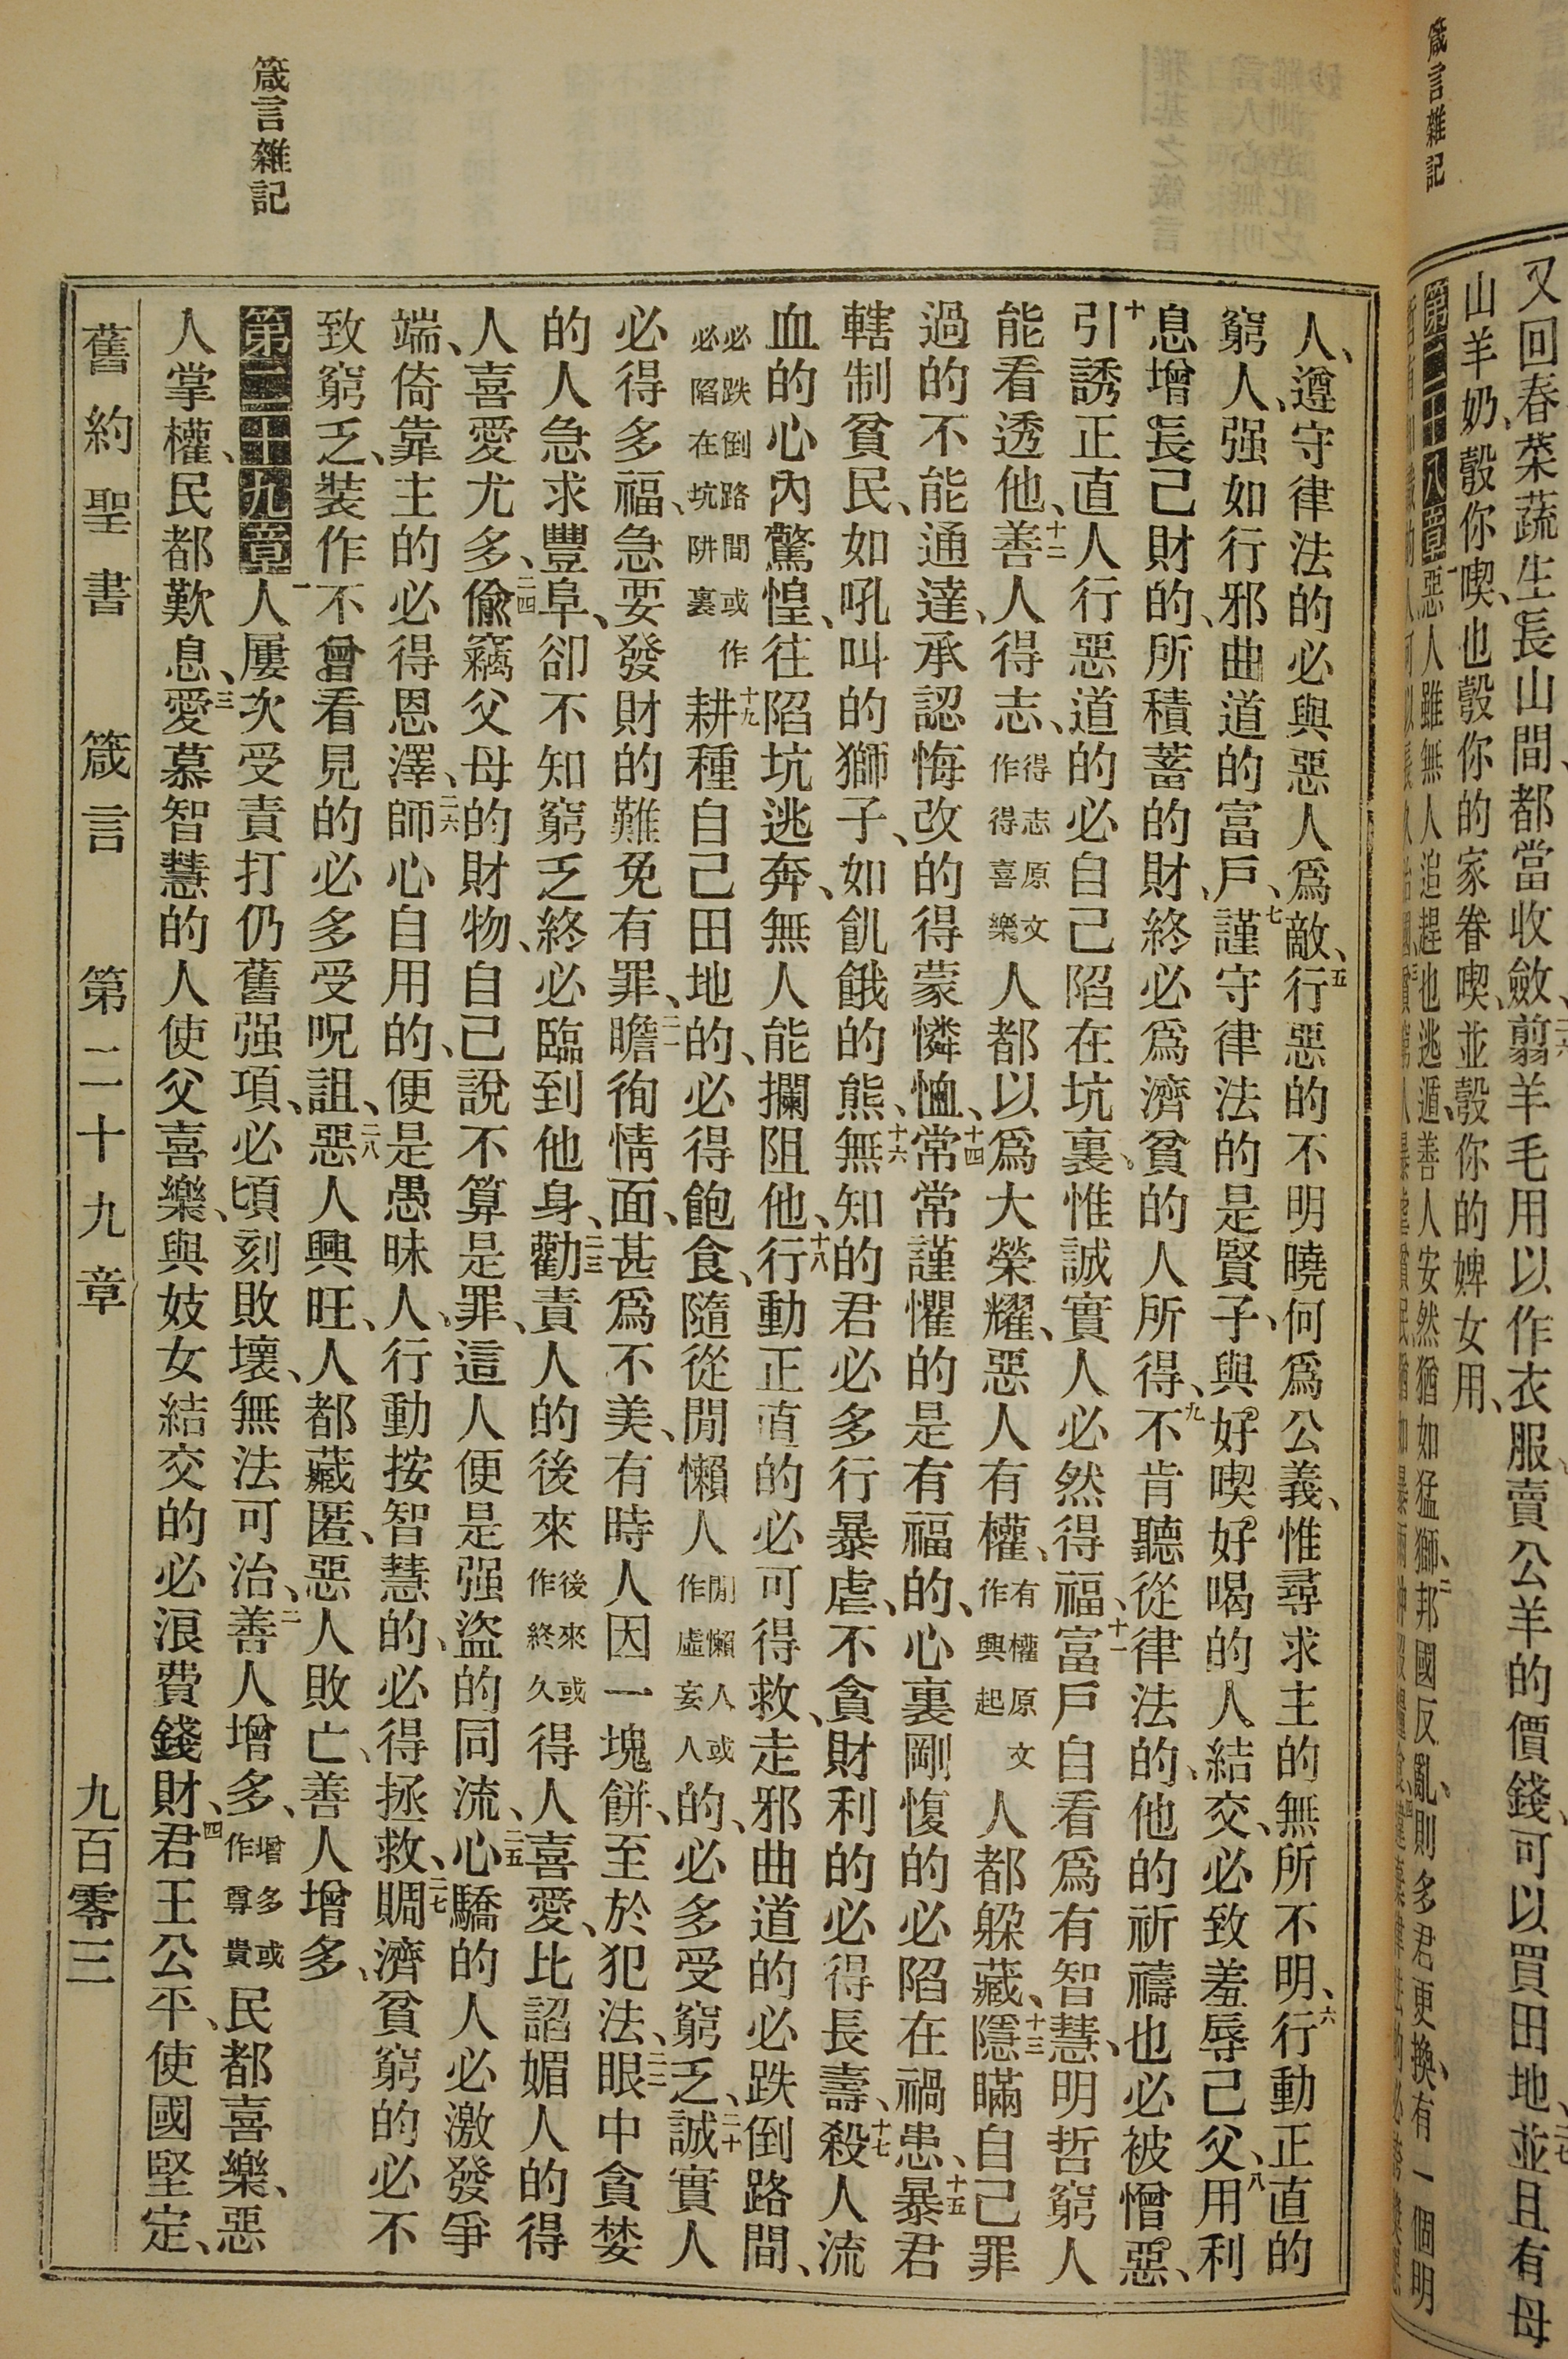 箴言雜記
又回春菜蔬生長山間、都當收斂、二六翦羊毛用以作衣服、賣公羊的價錢、可以買田地、二七並且有母
山羊奶、彀你喫、也彀你的家眷喫、並彀你的婢女用、
第二十八章一惡人雖無人追趕也逃遁、善人安然猶如猛獅、二邦國反亂、則多君更換、有一個明
箴言雜記
人、遵守律法的必與惡人爲敵、五行惡的不明曉何爲公義、惟尋求主的無所不明、六行動正直的
窮人、强如行邪曲道的富戶、七謹守律法的是賢子、與好喫好喝的人結交、必致羞辱己父、八用利
息增長己財的、所積蓄的財、終必爲濟貧的人所得、九不肯聽從律法的、他的祈禱也必被憎惡、
十引誘正直人行惡道的必自己陷在坑裏。惟誠實人必然得福、十一富戶自看爲有智慧、明哲窮人
能看透他、十二善人得志、得志原文作得喜樂人都以爲大榮耀、惡人有權、有權原文作興起人都躲藏、十三隱瞞自己罪
過的不能通達、承認悔改的得蒙憐恤、十四常常謹懼的是有福的、心裏剛愎的必陷在禍患、十五暴君
轄制貧民、如吼叫的獅子、如飢餓的熊、十六無知的君必多行暴虐、不貪財利的必得長壽、十七殺人流
血的心內驚惶、往陷坑逃奔、無人能攔阻他、十八行動正直的必可得救、走邪曲道的必跌倒路間、
必跌倒路間或作必陷在坑阱裏十九耕種自己田地的、必得飽食、隨從閒懶人閒懶人或作虛妄人的、必多受窮乏、二十誠實人
必得多福、急要發財的難免有罪、二一瞻徇情面、甚爲不美、有時人因一塊餅、至於犯法、二二眼中貪婪
的人急求豐阜、卻不知窮乏終必臨到他身、二三勸責人的後來後來或作終久得人喜愛、比諂媚人的得
人喜愛尤多、二四偸竊父母的財物、自己說不算是罪、這人便是强盜的同流、二五心驕的人必激發爭
端、倚靠主的必得恩澤、二六師心自用的、便是愚昧人、行動按智慧的、必得拯救、二七賙濟貧窮的必不
致窮乏、裝作不曾看見的必多受呪詛、二八惡人興旺、人都藏匿、惡人敗亡、善人增多、
第二十九章一人屢次受責打仍舊强項、必頃刻敗壞、無法可治、二善人增多、增多或作尊貴民都喜樂、惡
人掌權、民都歎息、三愛慕智慧的人使父喜樂、與妓女結交的必浪費錢財、四君王公平、使國堅定、
舊約聖書 箴言 第二十九章 九百零三